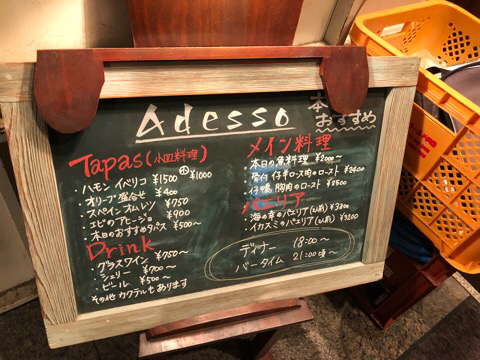 Adesso
本日の
おすすめ
Tapas(小皿料理)
・ハモン イベリコ ¥1500 ¥1000
・オリーブ盛合せ ¥400
・スペインオムレツ ¥750
・エビのアヒージョ ¥900
・本日のおすすめタパス ¥500〜
Drink
・グラスワイン ¥750〜
・シェリー ¥700〜
・ビール ¥500〜
その他 カクテルもあります
メイン料理
・本日の魚料理 ¥2000〜
・骨付 仔羊ロース肉のロースト ¥2400
・仔鴨 胸肉のロースト ¥2500
パエリア
・海の幸のパエリア ¥3200
・イカスミのパエリア ¥3200
ディナー 18:00〜
バータイム 21:00頃〜